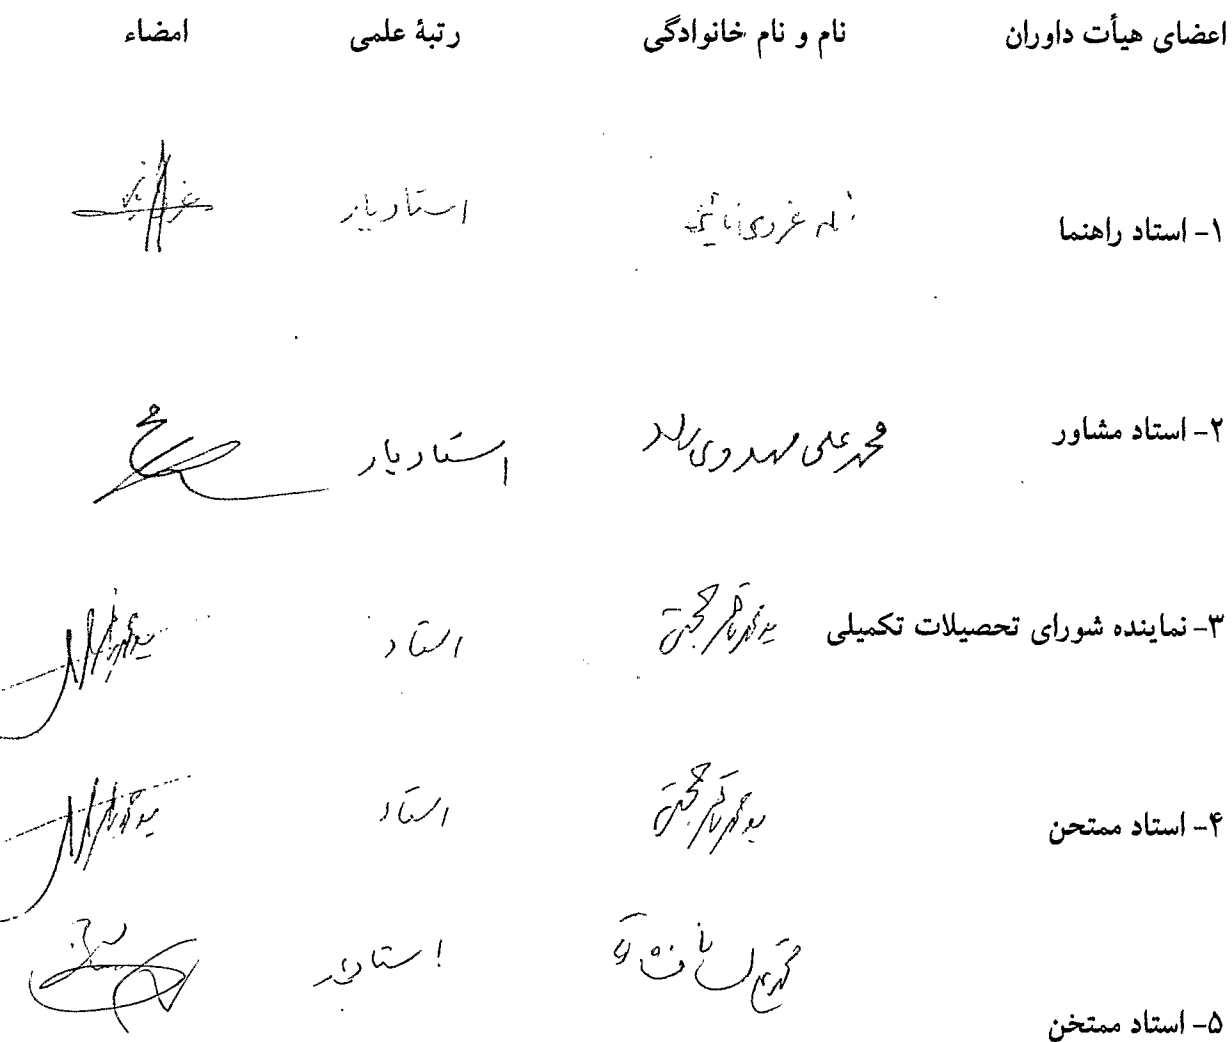 اعضای هیأت داوران نام و نام خانوادگی رتبۀ علمی امضاء
۱- استاد راهنما غروی نائینی استادیار
۲- استاد مشاور محمد علی مهدوی راد استادیار
۳- نماینده شورای تحصیلات تکمیلی سید محمد باقر حجتی استاد
۴- استاد ممتحن سید محمد باقر حجتی استاد
۵- استاد ممتخن استادیار